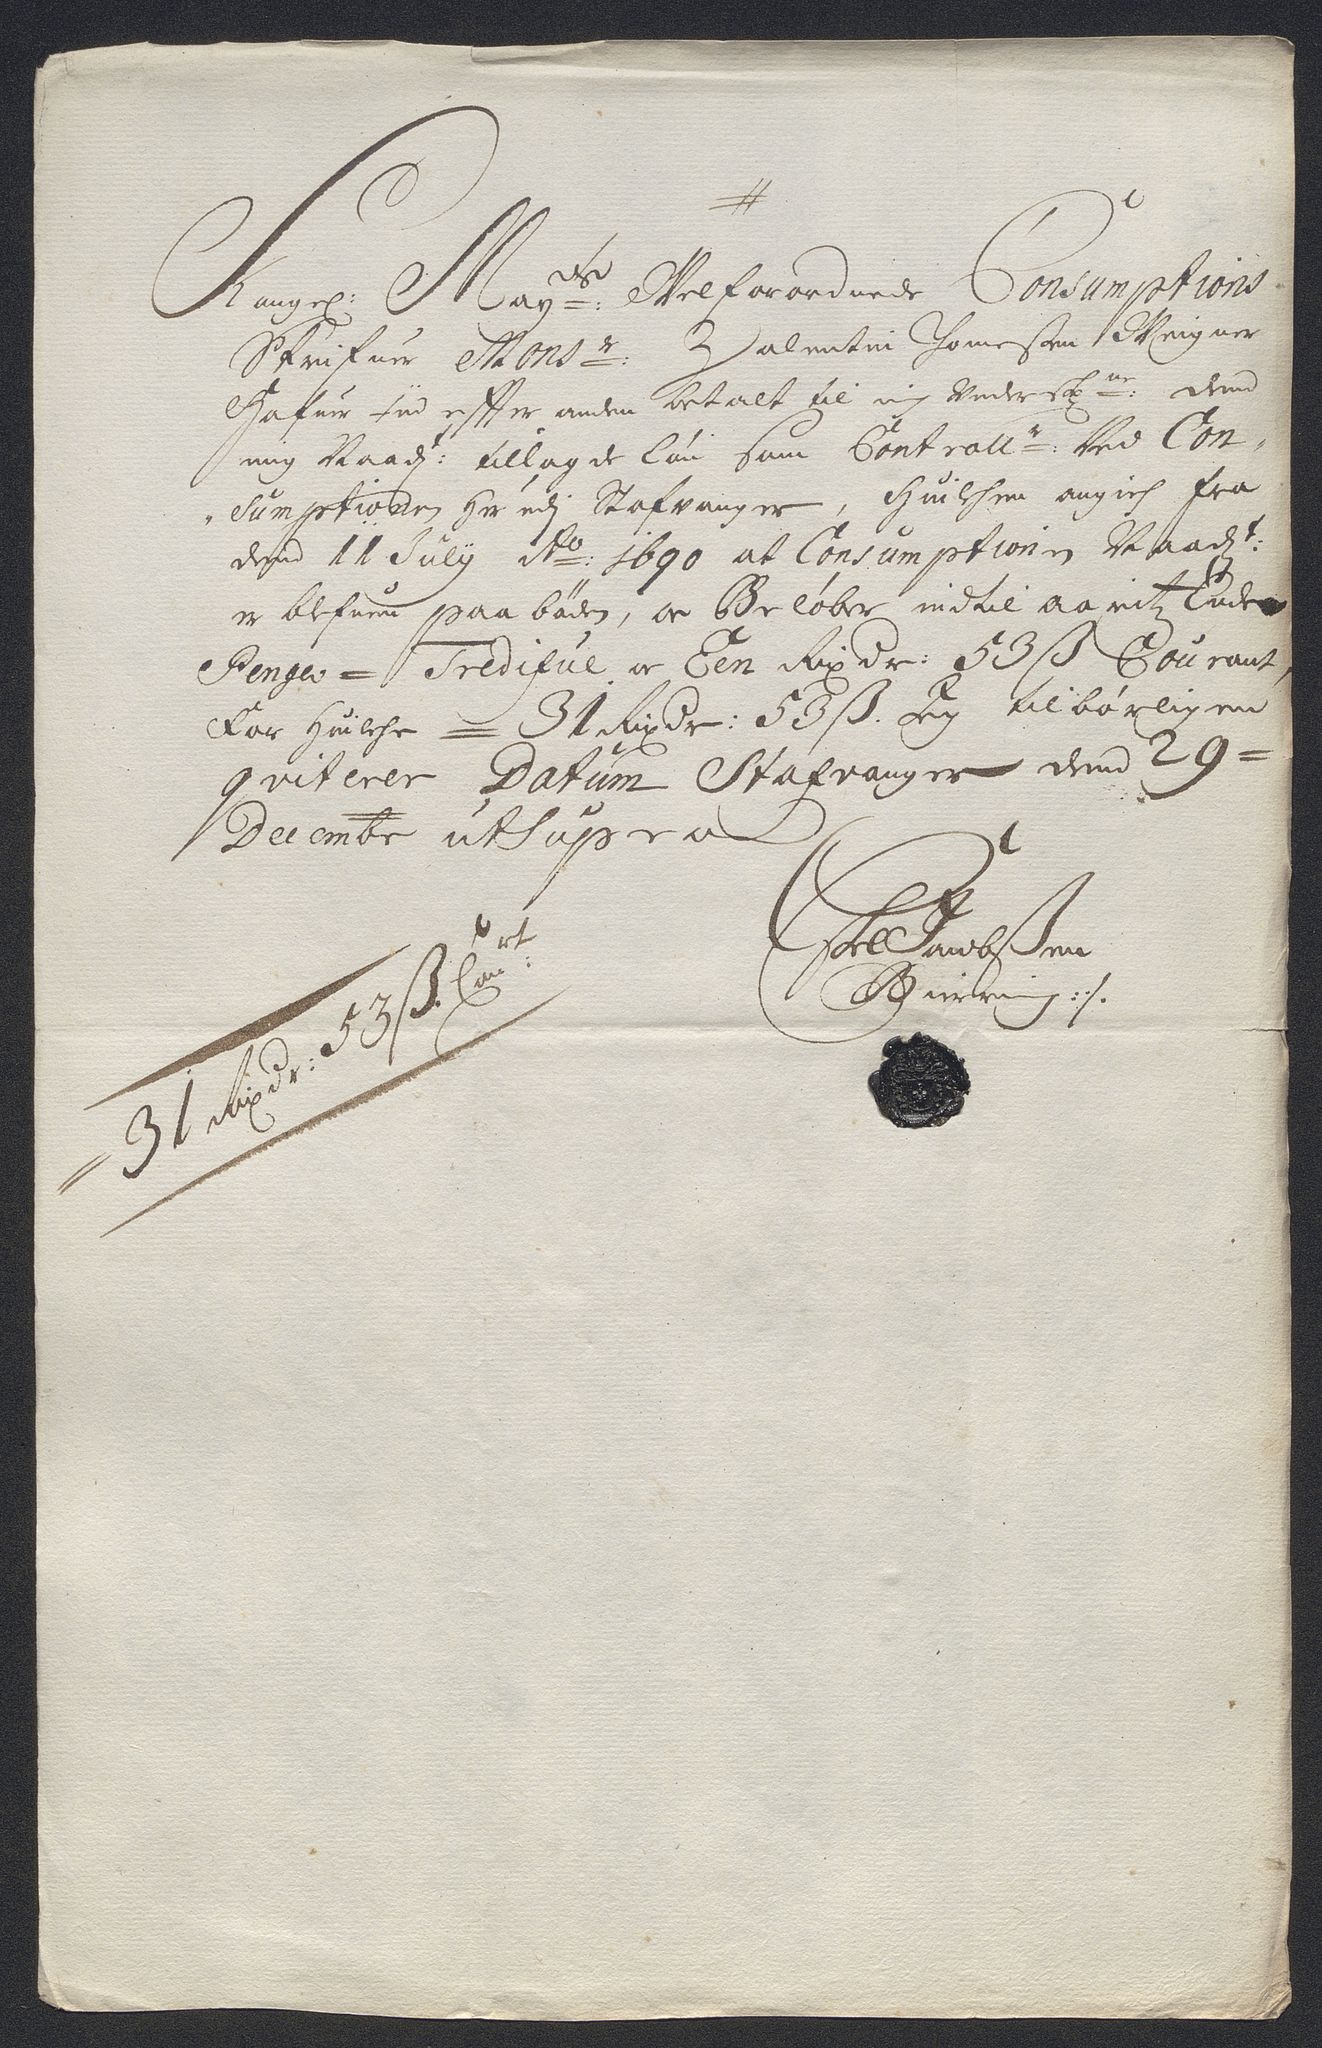 Kongel: May:ts Velforordnede Consumptions
Skrifuer Mons:r Valentin Thomesen Meigner
Hafuer effter anden betalt til mig Underskr:ne dend
mig Naad: tillagde Løn som Controll:r Ved Con-
sumptionen Her udj Stafvanger, Huilchen angich fra
dend 11 July Ao: 1690 at Consumptionen Naad:t
er blefuen paabøden, oc Beløber indtil aaritz Ende
Penge = Tredifue oc Een Rixdr: 53 ß Courant,
For Huilche = 31 Rixdr: 53 ß. Jeg tilbørligen
qviterer Datum Stafvanger dend 29=
Decembr ut supra
Jacobßen
= 31 Rixdr: 53 ß. Cou:rt